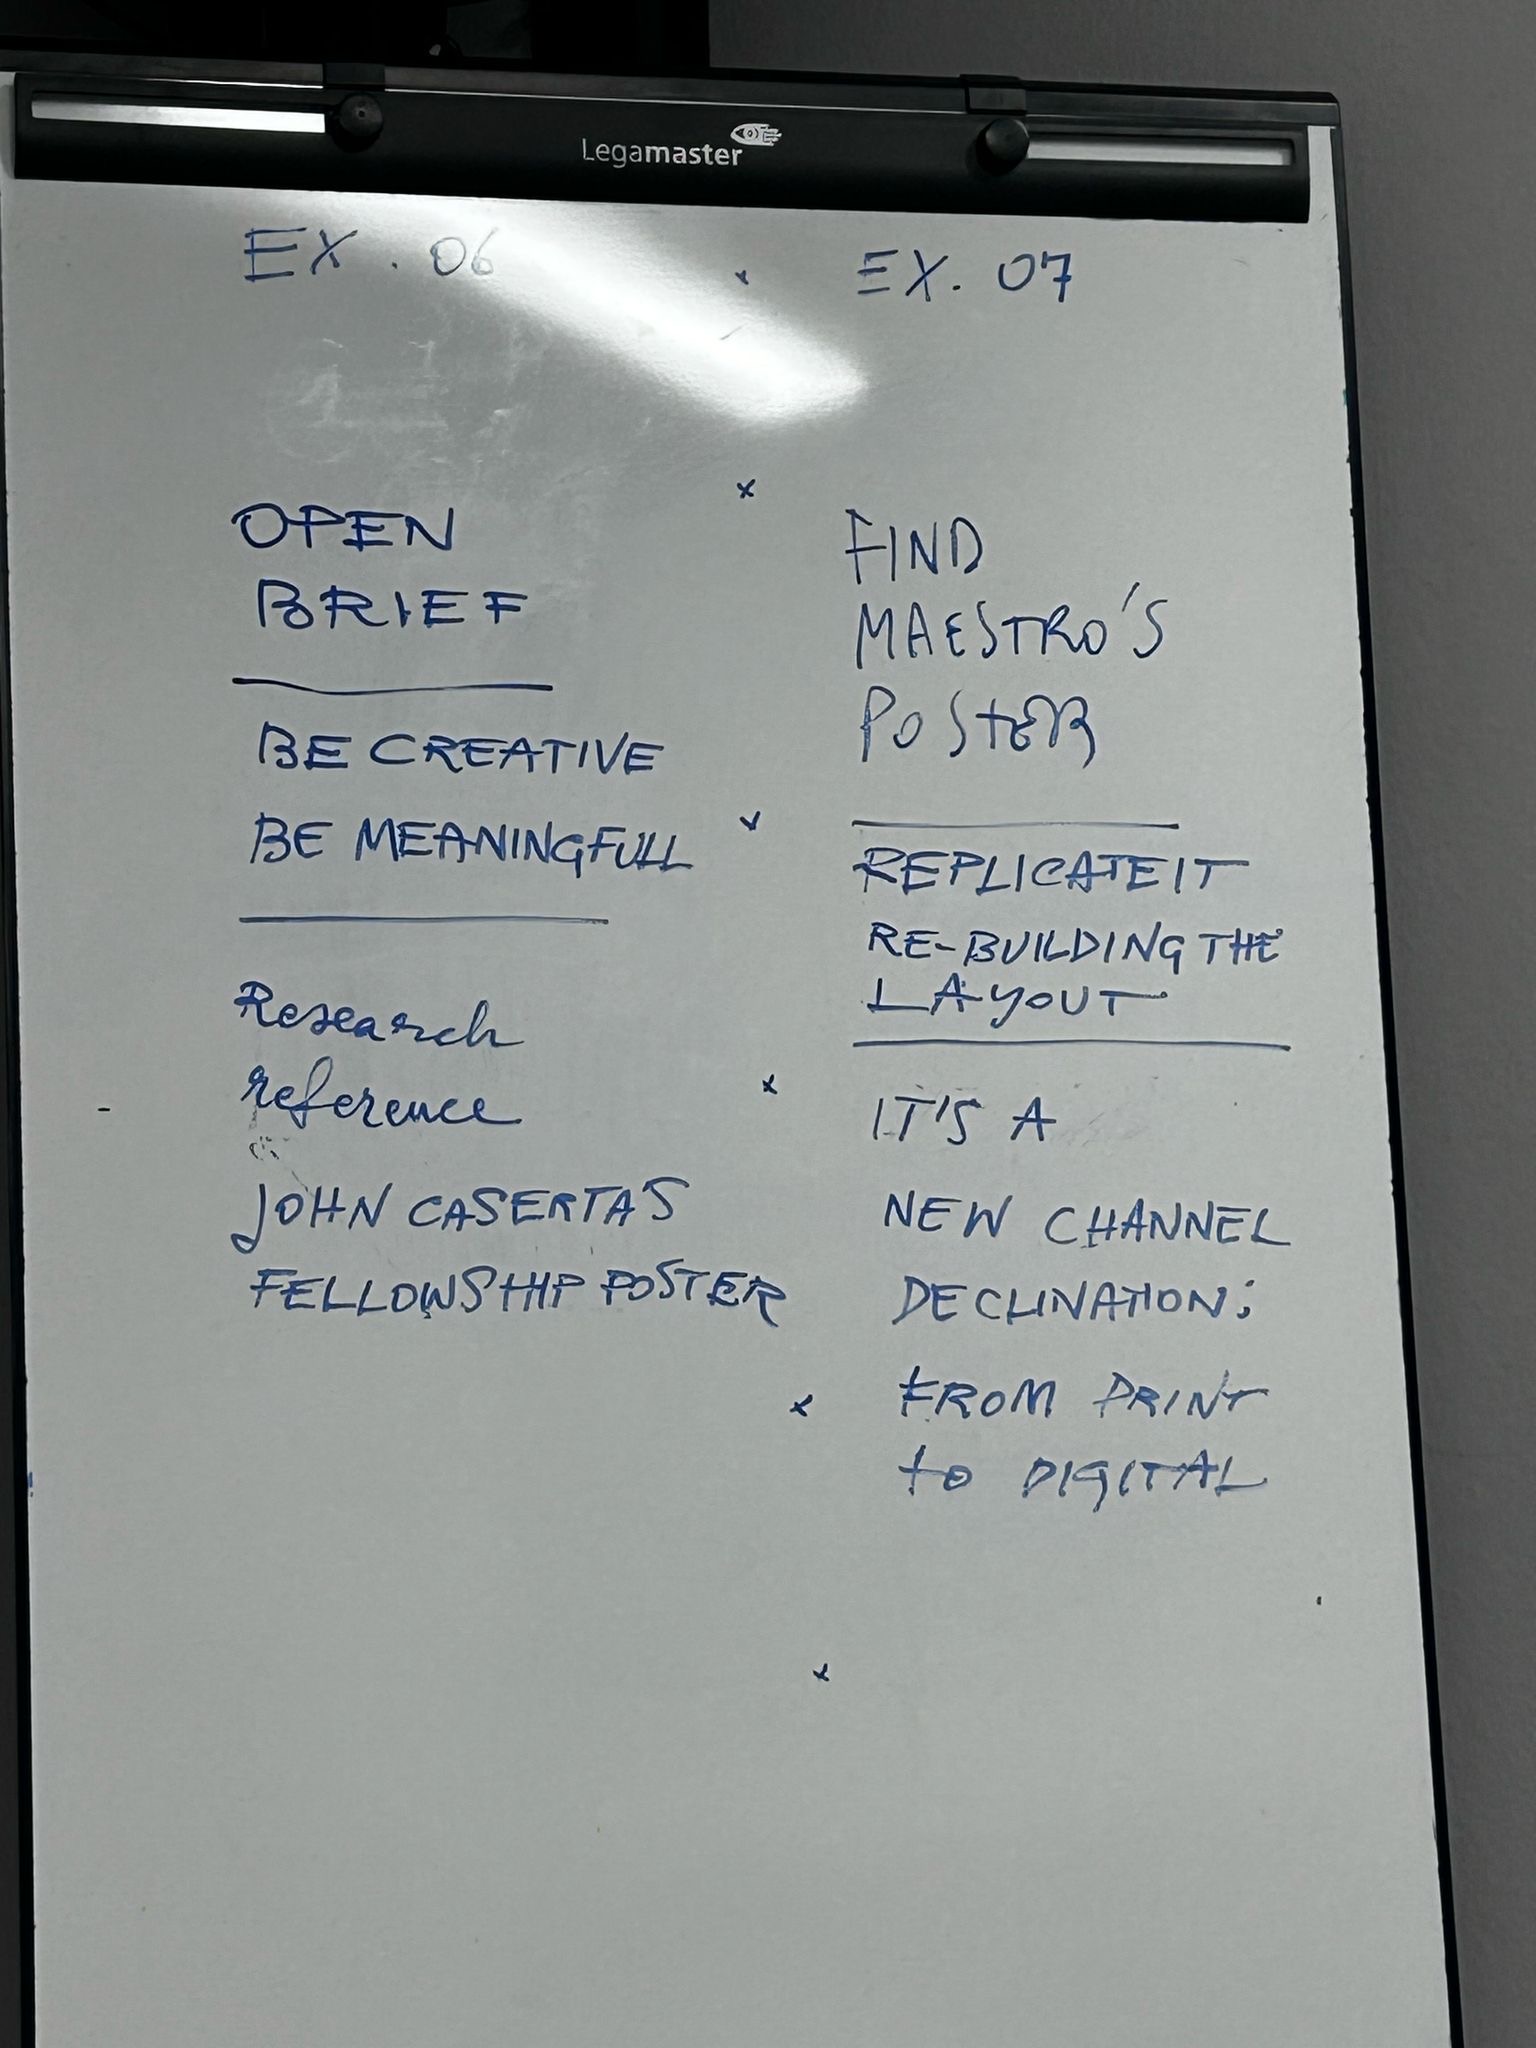 Legamaster
EX. 06
OPEN
BRIEF
BE CREATIVE
BE MEANINGFULL
Research
reference
JOHN CASERTA'S
FELLOWSHIP POSTER
EX. 07
FIND
MAESTRO'S
POSTER
REPLICATE IT
RE-BUILDING THE
LAYOUT
IT'S A
NEW CHANNEL
DECLINATION:
FROM PRINT
to DIGITAL